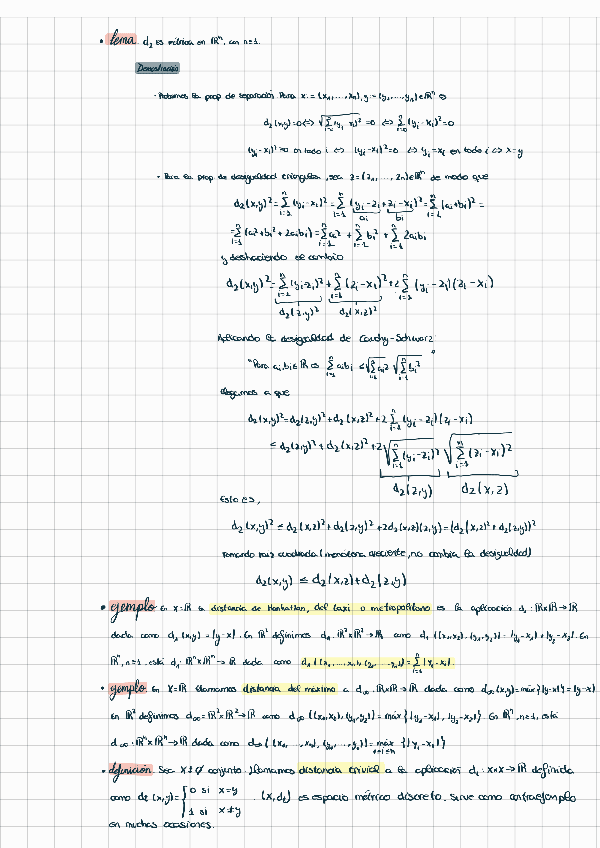 • lema. d₂ es métrica en ℝⁿ, con n≥1.
Demostración
· Probemos la prop de separación. Para x=(x₁,...,xₙ), y=(y₁,...,yₙ)∈ℝⁿ es
d₂(x,y)=0 ⇔ √(∑ᵢ₌₁ⁿ (yᵢ-xᵢ)²) =0 ⇔ ∑ᵢ₌₁ⁿ (yᵢ-xᵢ)²=0
(yᵢ-xᵢ)²=0 en todo i ⇔ (yᵢ-xᵢ)²=0 ⇔ yᵢ=xᵢ en todo i ⇔ x=y
· Para la prop de desigualdad triangular, sea z=(z₁,...,zₙ)∈ℝⁿ de modo que
d₂(x,y)²=∑ᵢ₌₁ⁿ (yᵢ-xᵢ)²=∑ᵢ₌₁ⁿ (yᵢ-zᵢ+zᵢ-xᵢ)²=∑ᵢ₌₁ⁿ (aᵢ+bᵢ)² =
aᵢ bᵢ
=∑ᵢ₌₁ⁿ (aᵢ²+bᵢ²+2aᵢbᵢ)=∑ᵢ₌₁ⁿ aᵢ² + ∑ᵢ₌₁ⁿ bᵢ² + ∑ᵢ₌₁ⁿ 2aᵢbᵢ
y deshaciendo el cambio
d₂(x,y)²=∑ᵢ₌₁ⁿ (yᵢ-zᵢ)²+∑ᵢ₌₁ⁿ (zᵢ-xᵢ)²+2∑ᵢ₌₁ⁿ (yᵢ-zᵢ)(zᵢ-xᵢ)
d₂(z,y)² d₂(x,z)²
Aplicando la desigualdad de Cauchy-Schwarz:
"Para aᵢ,bᵢ∈ℝ es ∑ᵢ₌₁ⁿ aᵢbᵢ ≤ √(∑ᵢ₌₁ⁿ aᵢ²) √(∑ᵢ₌₁ⁿ bᵢ²) "
llegamos a que
d₂(x,y)²=d₂(z,y)²+d₂(x,z)²+2∑ᵢ₌₁ⁿ (yᵢ-zᵢ)(zᵢ-xᵢ)
≤ d₂(z,y)²+d₂(x,z)²+2√(∑ᵢ₌₁ⁿ (yᵢ-zᵢ)²) √(∑ᵢ₌₁ⁿ (zᵢ-xᵢ)²)
d₂(z,y) d₂(x,z)
Esto es,
d₂(x,y)² ≤ d₂(x,z)²+d₂(z,y)²+2d₂(x,z)d₂(z,y)=(d₂(x,z)+d₂(z,y))²
Tomando raíz cuadrada (monótona creciente, no cambia la desigualdad)
d₂(x,y) ≤ d₂(x,z)+d₂(z,y)
• ejemplo En X=ℝ la distancia de Manhattan, del taxi o metropolitano es la aplicación d₁:ℝxℝ→ℝ
dada como d₁(x,y)=|y-x|. En ℝ² definimos d₁:ℝ²xℝ²→ℝ como d₁((x₁,x₂),(y₁,y₂))=|y₁-x₁|+|y₂-x₂|. En
ℝⁿ, n≥1, está d₁:ℝⁿxℝⁿ→ℝ dada como d₁((x₁,...,xₙ),(y₁,...,yₙ))=∑ᵢ₌₁ⁿ |yᵢ-xᵢ|.
• ejemplo En X=ℝ llamamos distancia del máximo a d∞:ℝxℝ→ℝ dada como d∞(x,y)=máx{|y-x|}=|y-x|
En ℝ² definimos d∞:ℝ²xℝ²→ℝ como d∞((x₁,x₂),(y₁,y₂))=máx{|y₁-x₁|,|y₂-x₂|}. En ℝⁿ, n≥1, está
d∞:ℝⁿxℝⁿ→ℝ dada como d∞((x₁,...,xₙ),(y₁,...,yₙ))=máx₁≤ᵢ≤ₙ {|yᵢ-xᵢ|}
• definición Sea X≠∅ conjunto. Llamamos distancia trivial a la aplicación dₜ:XxX→ℝ definida
como dₜ(x,y)={0 si x=y
1 si x≠y
. (X,dₜ) es espacio métrico discreto. Sirve como contraejemplo
en muchas ocasiones.